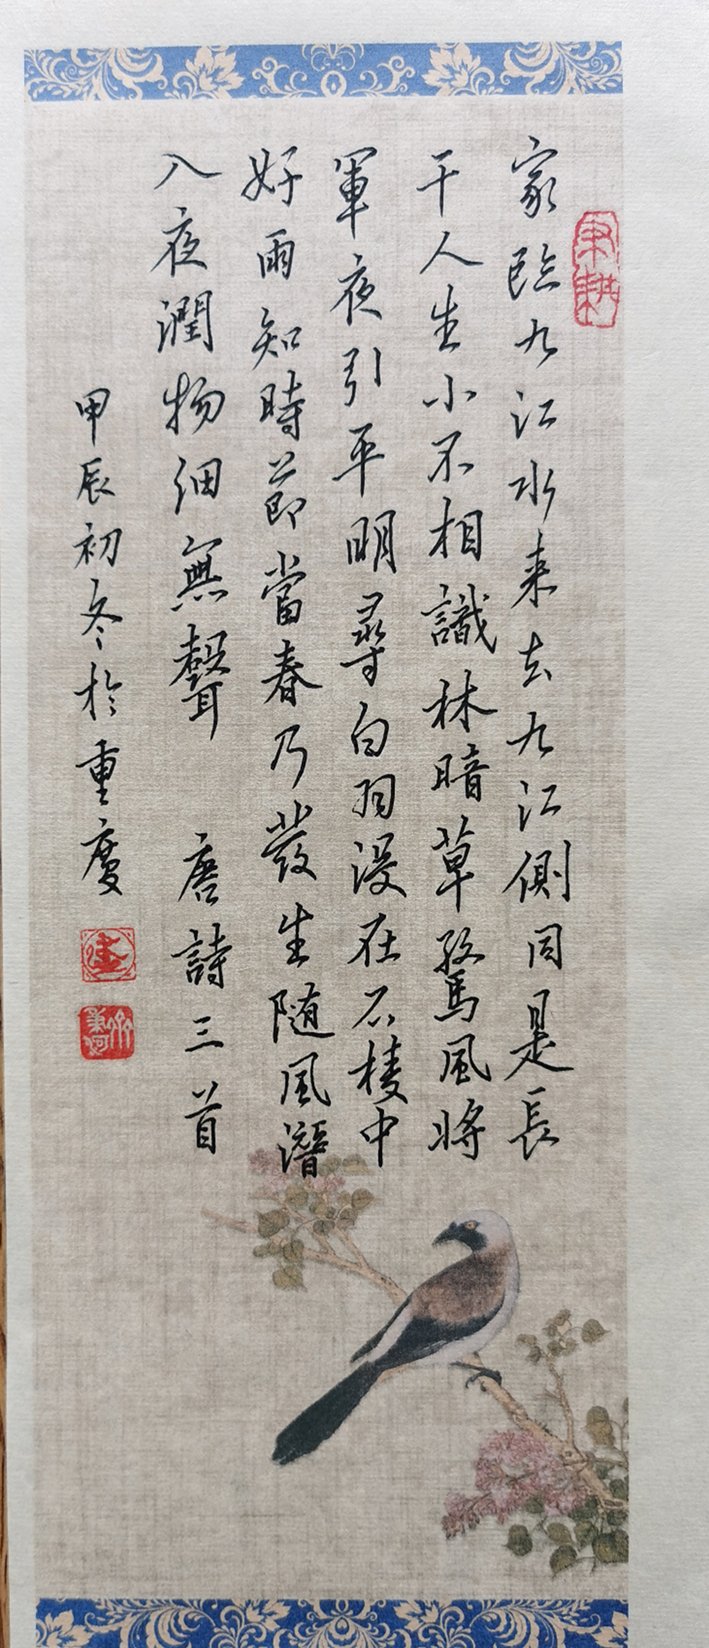 家臨九江水来去九江側同是長
干人生小不相識林暗草驚風將
軍夜引平明尋白羽没在石棱中
好雨知時節當春乃發生随風潛
入夜潤物細無聲 唐詩三首
甲辰初冬於重慶